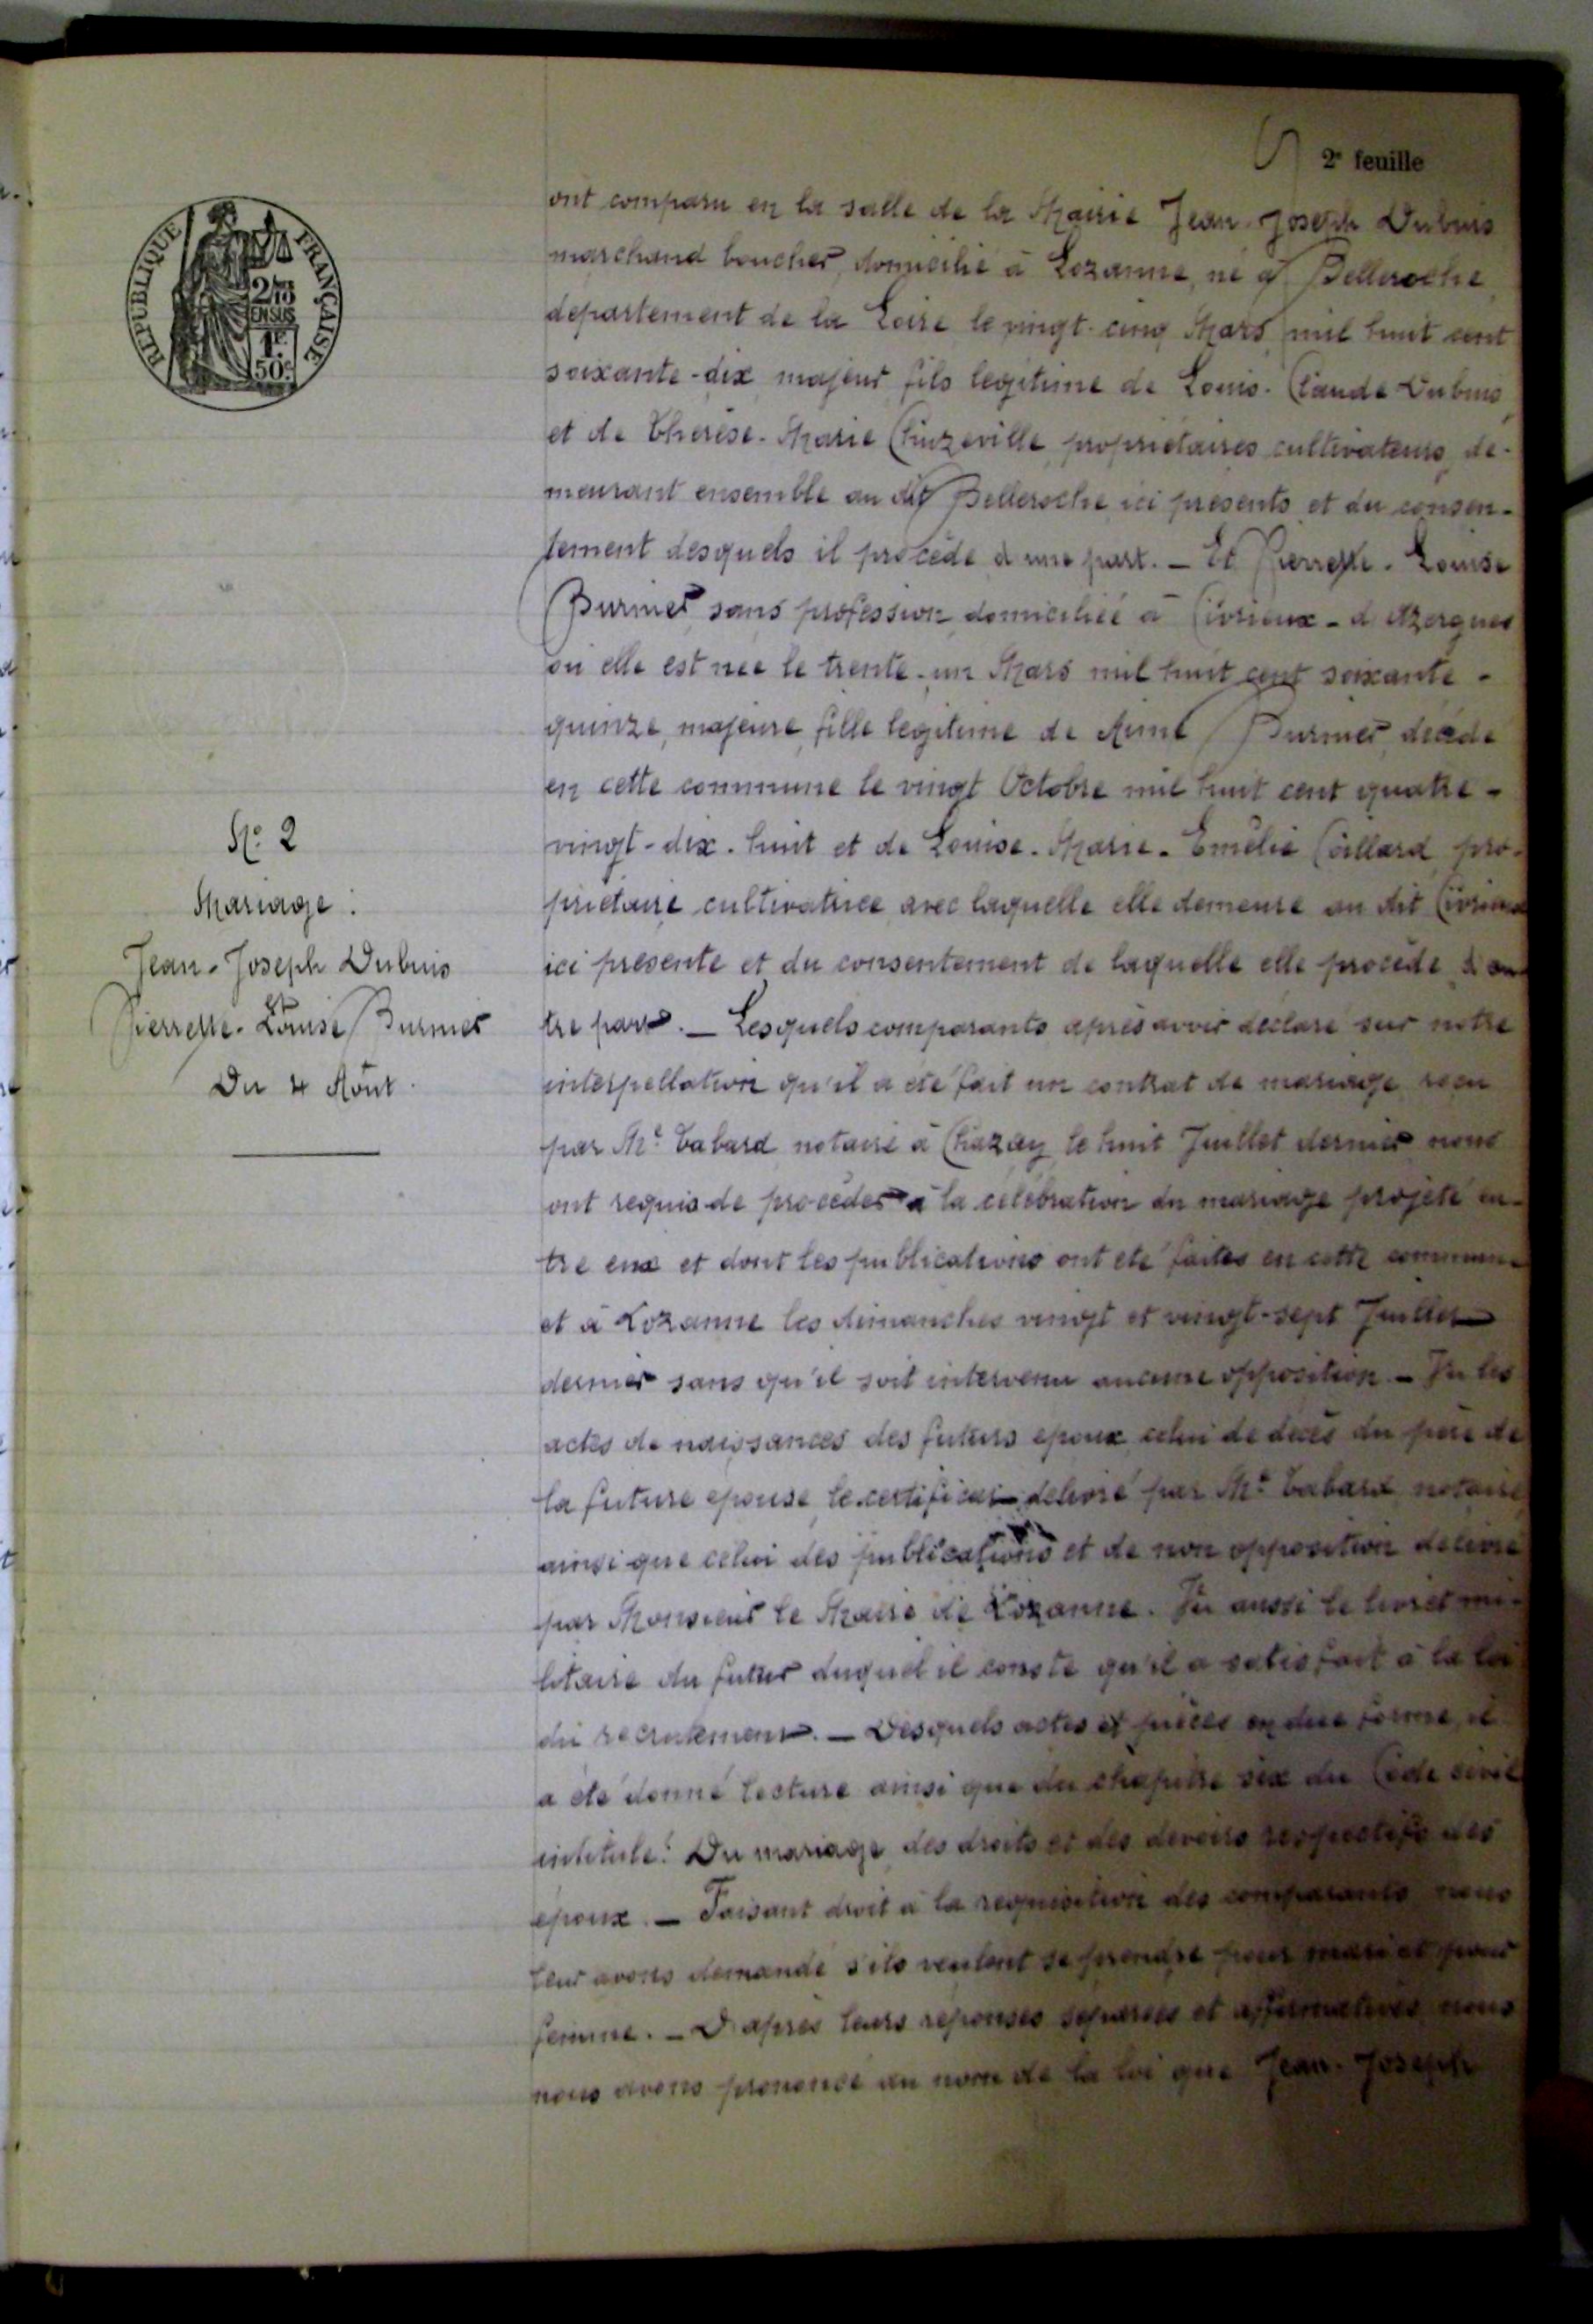 2e feuille
RÉPUBLIQUE FRANÇAISE
2/10
EN SUS
1F
50c
N° 2
Mariage :
Jean-Joseph Dubuis
et
Pierrette-Louise Burnier
Du 4 Août.
ont comparu en la salle de la Mairie Jean-Joseph Dubuis
marchand boucher, domicilié à Lozanne, né à Belleroche,
département de la Loire le vingt-cinq Mars mil huit cent
soixante-dix, majeur, fils légitime de Louis-Claude Dubuis
et de Thérèse-Marie Chuzeville, propriétaires cultivateurs, de-
meurant ensemble au dit Belleroche, ici présents et du consen-
tement desquels il procède d'une part. — Et Pierrette-Louise
Burnier, sans profession, domiciliée à Civrieux-d'Azergues
où elle est née le trente-un Mars mil huit cent soixante-
quinze, majeure, fille légitime de Aimé Burnier, décédé
en cette commune le vingt Octobre mil huit cent quatre-
vingt-dix-huit et de Louise-Marie-Emélie Coillard, pro-
priétaire cultivatrice avec laquelle elle demeure au dit Civrieux
ici présente et du consentement de laquelle elle procède d'au
tre part. — Lesquels comparants après avoir déclaré sur notre
interpellation qu'il a été fait un contrat de mariage reçu
par Me Tabard notaire à Chazay le huit Juillet dernier nous
ont requis de procéder à la célébration du mariage projeté en-
tre eux et dont les publications ont été faites en cette commune
et à Lozanne les dimanches vingt et vingt-sept Juillet
dernier sans qu'il soit intervenu aucune opposition. — Vu les
actes de naissances des futurs époux, celui de décès du père de
la future épouse, le certificat délivré par Me Tabard notaire,
ainsi que celui des publications et de non opposition délivré
par Monsieur le Maire de Lozanne. Vu aussi le livret mi-
litaire du futur duquel il conste qu'il a satisfait à la loi
du recrutement. — Desquels actes et pièces en due forme, il
a été donné lecture ainsi que du chapitre six du Code civil
intitulé: Du mariage, des droits et des devoirs respectifs des
époux. — Faisant droit à la réquisition des comparants nous
leur avons demandé s'ils veulent se prendre pour mari et pour
femme. — D'après leurs réponses séparées et affirmatives nous
nous avons prononcé au nom de la loi que Jean-Joseph